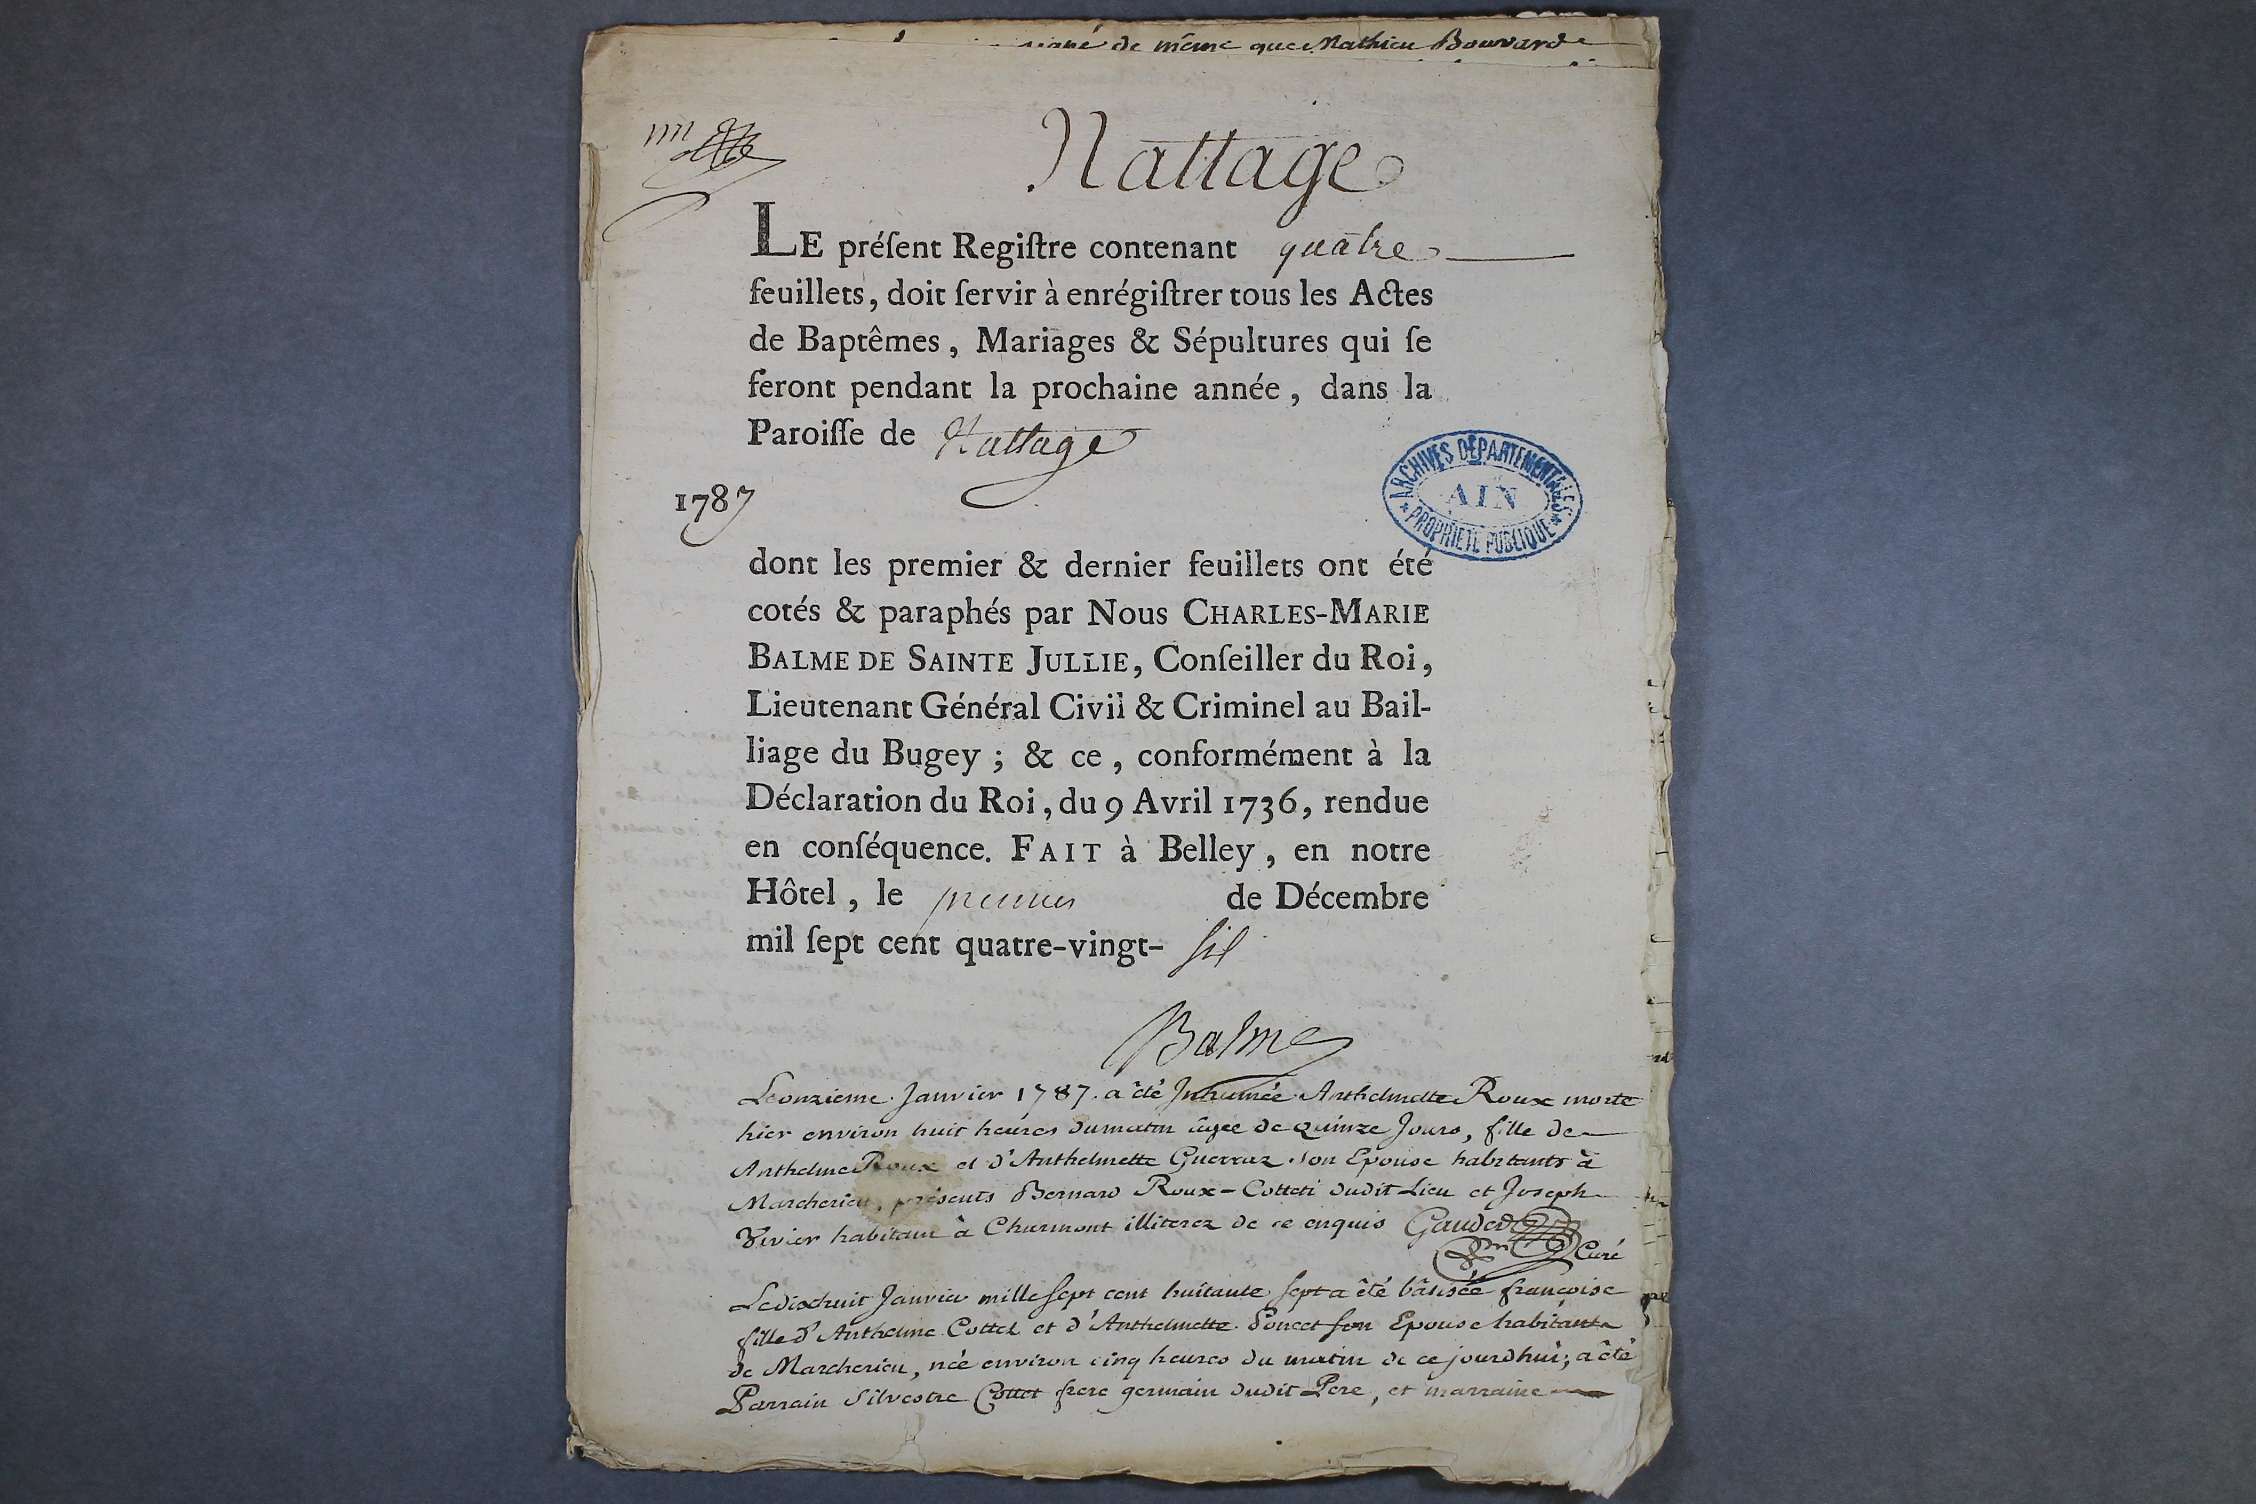 signé de même que Mathieu Bouvard
Nattage
LE préſent Regiſtre contenant quatre
feuillets, doit ſervir à enrégiſtrer tous les Actes
de Baptêmes, Mariages & Sépultures qui ſe
feront pendant la prochaine année, dans la
Paroiſſe de Nattage
1787
ARCHIVES DÉPARTEMENTALES
AIN
* PROPRIÉTÉ PUBLIQUE *
dont les premier & dernier feuillets ont été
cotés & paraphés par Nous CHARLES-MARIE
BALME DE SAINTE JULLIE, Conſeiller du Roi,
Lieutenant Général Civil & Criminel au Bail-
liage du Bugey ; & ce, conformément à la
Déclaration du Roi, du 9 Avril 1736, rendue
en conſéquence. FAIT à Belley, en notre
Hôtel, le premier de Décembre
mil ſept cent quatre-vingt- six
Balme
Le onzieme Janvier 1787. a êté Inhumée Anthelmette Roux morte
hier environ huit heures du matin âgée de quinze Jours, fille de
Anthelme Roux et d'Anthelmette Guerraz son Epouse habitants à
Marcherieu, présents Bernard Roux-Cotteti dudit Lieu et Joseph
Vivier habitant à Charmont illiterez de ce enquis Gauded
Curé
Le dixhuit Janvier mille sept cent huitante sept a êté bâtisée françoise
fille d'Anthelme Cottet et d'Anthelmette Poncet son Epouse habitants
de Marcherieu, née environ cinq heures du matin de ce jourdhui; a êté
Parrain Silvestre Cottet frere germain dudit Pere, et marraine